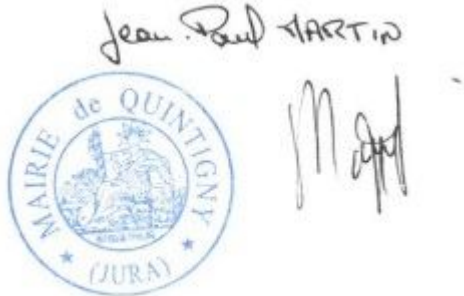 Jean-Paul MARTIN
MAIRIE de QUINTIGNY
(JURA)